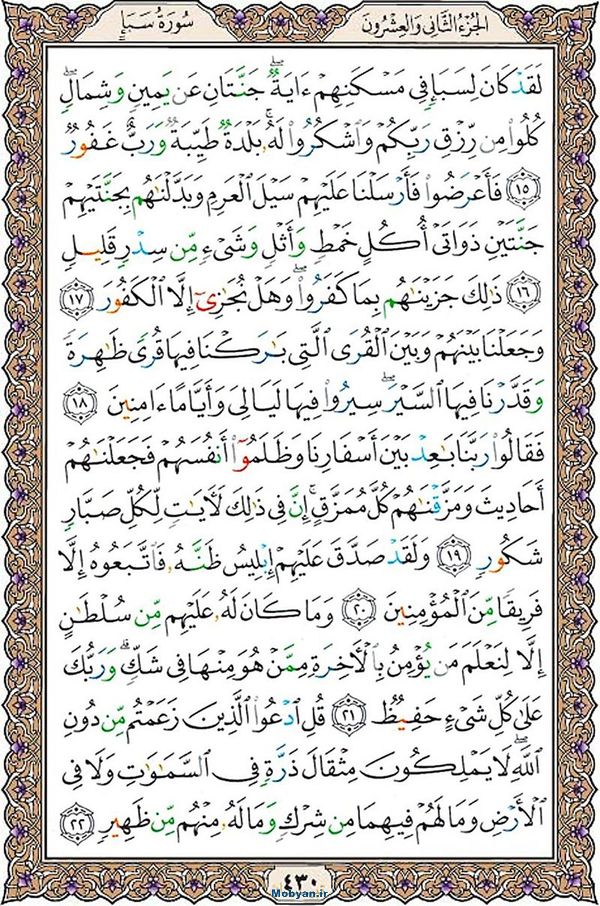 الجُزءُ الثَّانِي وَالعِشرُونَ
سُورَةُ سَبَإٍ
لَقَدْ كَانَ لِسَبَإٍ فِي مَسْكَنِهِمْ ءَايَةٌۖ جَنَّتَانِ عَن يَمِينٍ وَشِمَالٍۖ
كُلُوا۟ مِن رِّزْقِ رَبِّكُمْ وَٱشْكُرُوا۟ لَهُۥۚ بَلْدَةٌ طَيِّبَةٌ وَرَبٌّ غَفُورٌ
﴿١٥﴾ فَأَعْرَضُوا۟ فَأَرْسَلْنَا عَلَيْهِمْ سَيْلَ ٱلْعَرِمِ وَبَدَّلْنَٰهُم بِجَنَّتَيْهِمْ
جَنَّتَيْنِ ذَوَاتَىْ أُكُلٍ خَمْطٍ وَأَثْلٍ وَشَىْءٍ مِّن سِدْرٍ قَلِيلٍ
﴿١٦﴾ ذَٰلِكَ جَزَيْنَٰهُم بِمَا كَفَرُوا۟ۖ وَهَلْ نُجَٰزِىٓ إِلَّا ٱلْكَفُورَ ﴿١٧﴾
وَجَعَلْنَا بَيْنَهُمْ وَبَيْنَ ٱلْقُرَى ٱلَّتِى بَٰرَكْنَا فِيهَا قُرًى ظَٰهِرَةً
وَقَدَّرْنَا فِيهَا ٱلسَّيْرَۖ سِيرُوا۟ فِيهَا لَيَالِىَ وَأَيَّامًا ءَامِنِينَ ﴿١٨﴾
فَقَالُوا۟ رَبَّنَا بَٰعِدْ بَيْنَ أَسْفَارِنَا وَظَلَمُوٓا۟ أَنفُسَهُمْ فَجَعَلْنَٰهُمْ
أَحَادِيثَ وَمَزَّقْنَٰهُمْ كُلَّ مُمَزَّقٍۚ إِنَّ فِى ذَٰلِكَ لَءَايَٰتٍ لِّكُلِّ صَبَّارٍ
شَكُورٍ ﴿١٩﴾ وَلَقَدْ صَدَّقَ عَلَيْهِمْ إِبْلِيسُ ظَنَّهُۥ فَٱتَّبَعُوهُ إِلَّا
فَرِيقًا مِّنَ ٱلْمُؤْمِنِينَ ﴿٢٠﴾ وَمَا كَانَ لَهُۥ عَلَيْهِم مِّن سُلْطَٰنٍ
إِلَّا لِنَعْلَمَ مَن يُؤْمِنُ بِٱلْءَاخِرَةِ مِمَّنْ هُوَ مِنْهَا فِى شَكٍّۗ وَرَبُّكَ
عَلَىٰ كُلِّ شَىْءٍ حَفِيظٌ ﴿٢١﴾ قُلِ ٱدْعُوا۟ ٱلَّذِينَ زَعَمْتُم مِّن دُونِ
ٱللَّهِۖ لَا يَمْلِكُونَ مِثْقَالَ ذَرَّةٍ فِى ٱلسَّمَٰوَٰتِ وَلَا فِى
ٱلْأَرْضِ وَمَا لَهُمْ فِيهِمَا مِن شِرْكٍ وَمَا لَهُۥ مِنْهُم مِّن ظَهِيرٍ ﴿٢٢﴾
٤٣٠
Mobyan.ir